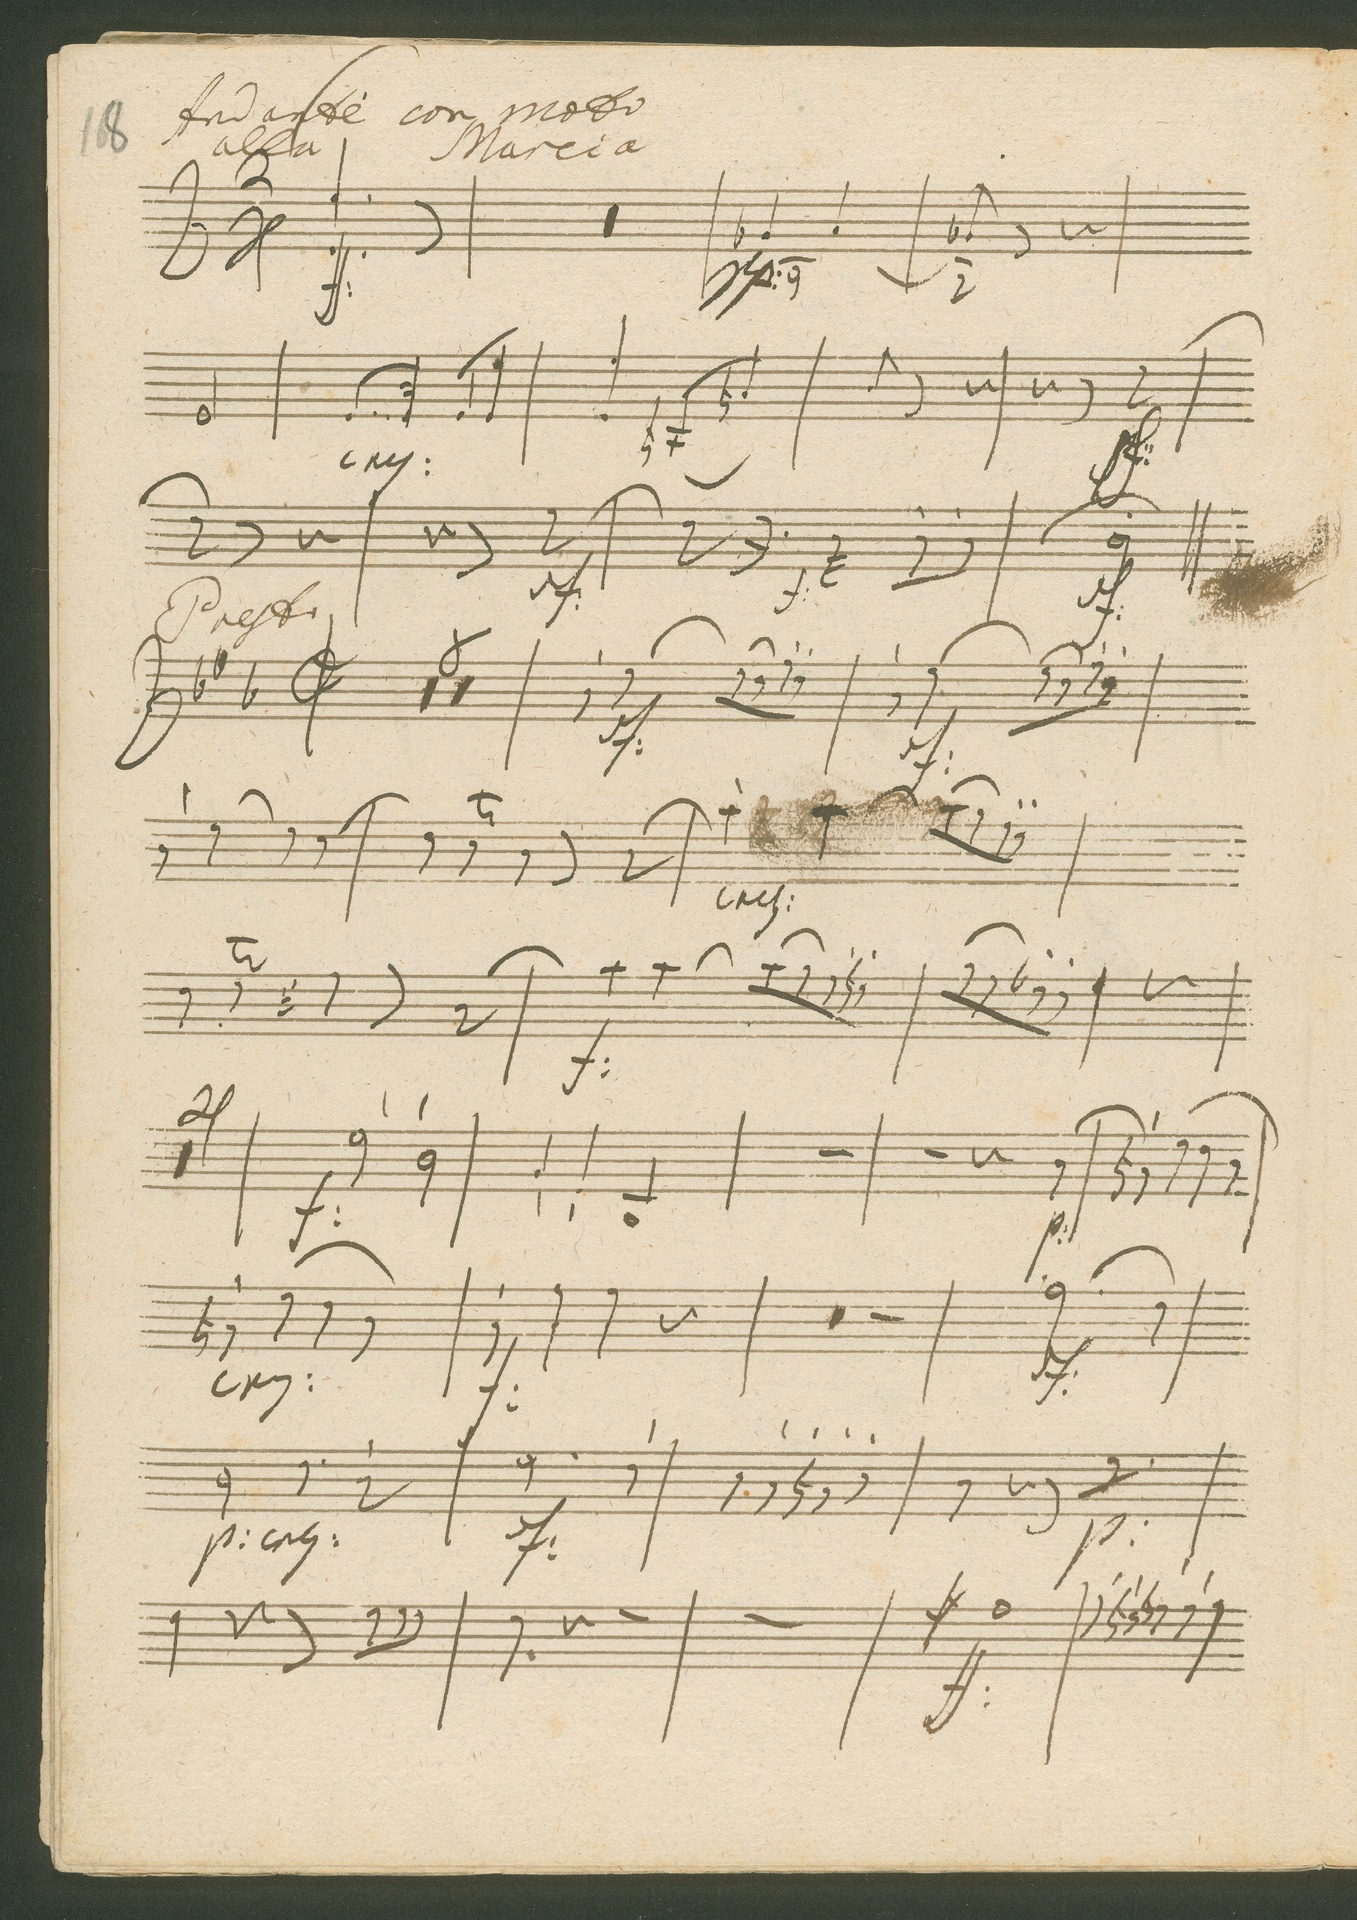 168
Andante con moto
alla Marcia
2
4
ff:
cres:
sf: f: sf:
Presto
8
sf: sf:
tr
cres:
tr
f:
4
f: p:
cres: f: sf:
p: cres: sf: p:
ff: